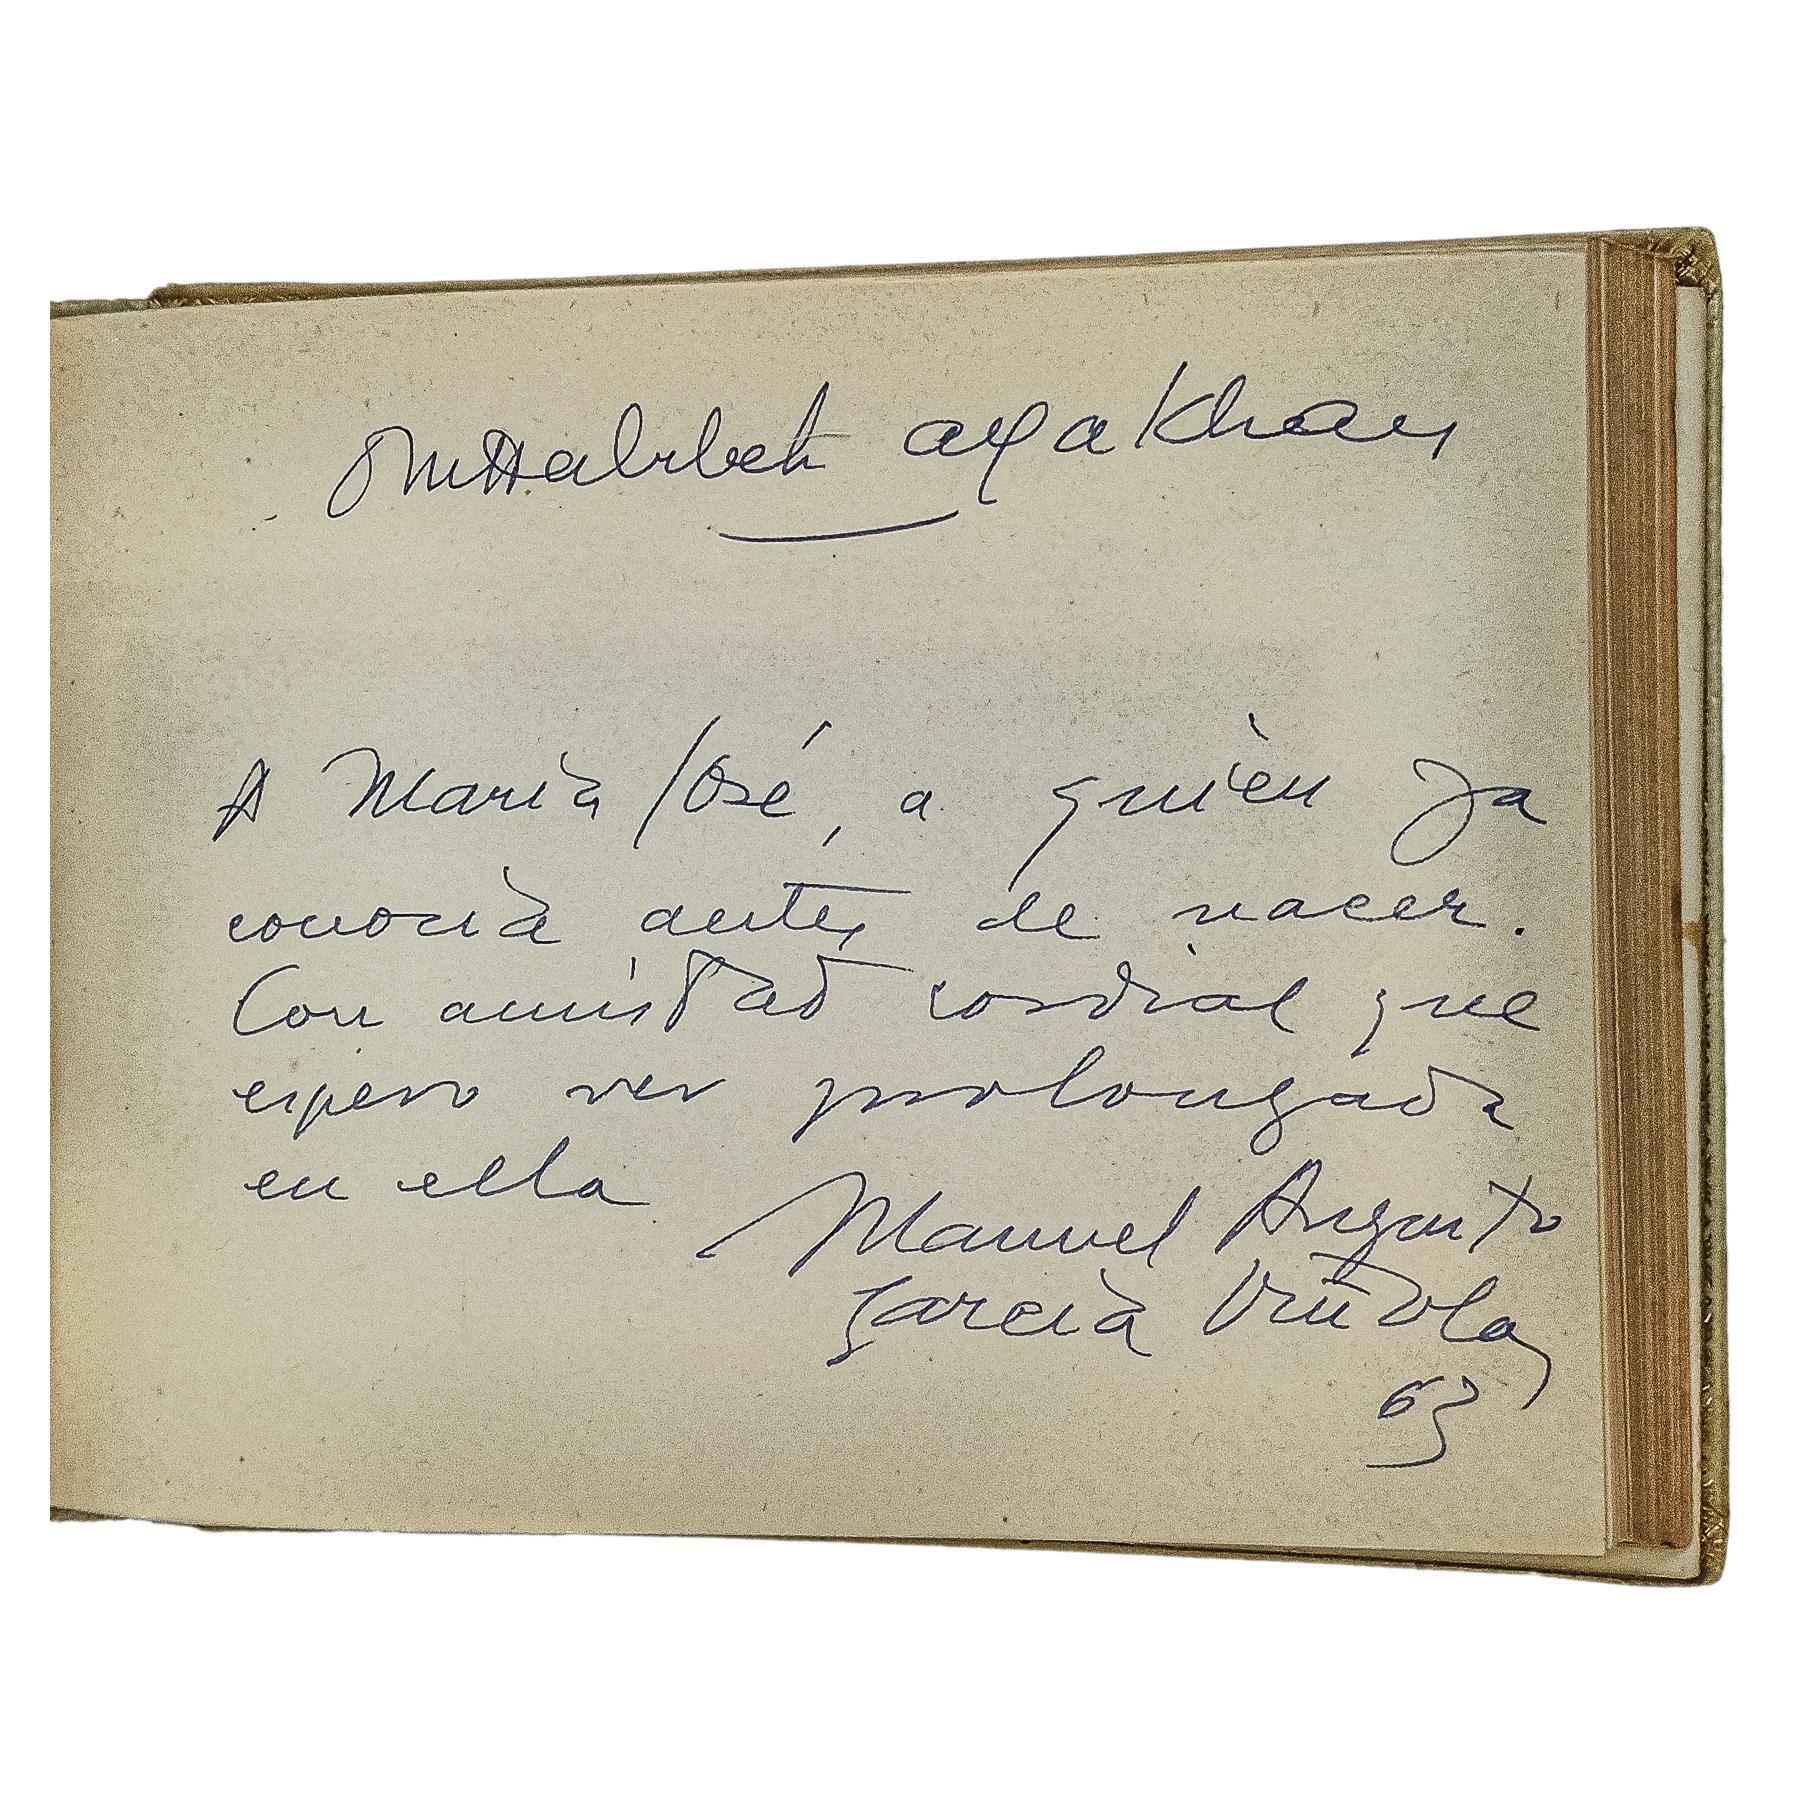 Om Habibeh Aga Khan
A María José, a quién ya
conocía antes de nacer.
Con amistad cordial que
espero ver prolongada
en ella
Manuel Augusto
García Viñolas
63